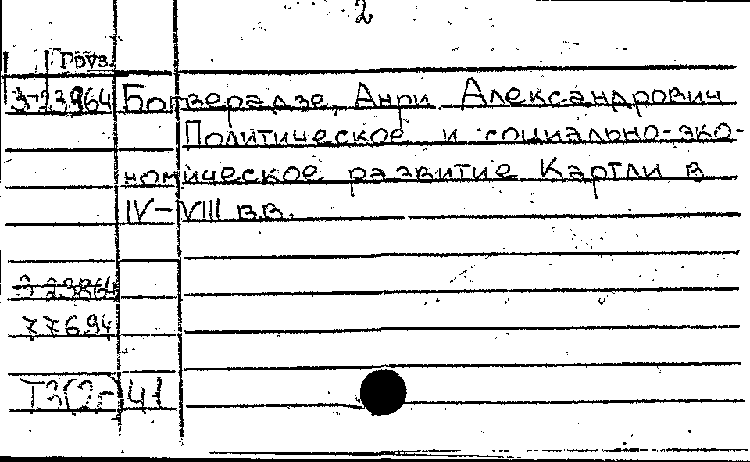 2
Груз.
3-23964 Богверадзе, Анри Александрович
Политическое и социально-эко-
номическое развитие Картли в
IV-VIII вв.
3-23864
77694
Т3(2Г)41